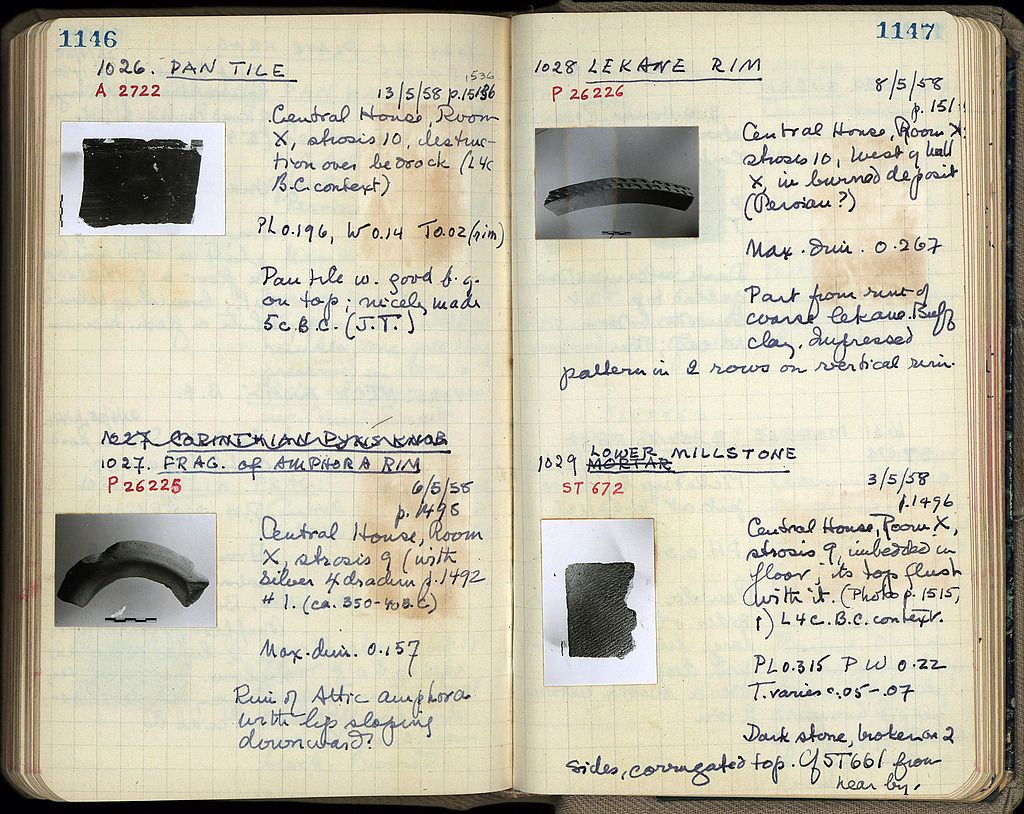 1146
1026. PAN TILE
A 2722
1536
13/5/58 p.
Central House, Room
X, strosis 10, destruc-
tion over bedrock (L4c
B.C. context)
PL 0.196, W 0.14 T 0.02 (rim)
Pan tile w. good b. g.
on top; nicely made
5c. B.C. (J.T.)
1027. CORINTHIAN PYXIS KNOB
1027. FRAG. of AMPHORA RIM
P 26225
6/5/58
p. 1498
Central House, Room
X, strosis 9 (with
silver 4 drachm p. 1492
# 1. (ca. 350-40 B.C)
Max. dim. 0.157
Rim of Attic amphora
with lip sloping
downward?
1147
1028 LEKANE RIM
P 26226
8/5/58
p. 151
Central House, Room X,
strosis 10, West of Wall
X, in burned deposit
(Persian?)
Max. dim. 0.267
Part from rim of
coarse lekane. Buff
clay. Impressed
pattern in 2 rows on vertical rim.
LOWER
1029 MORTAR MILLSTONE
ST 672
3/5/58
p. 1496
Central House, Room X,
strosis 9, imbedded in
floor; its top flush
with it. (Photo p. 1515,
1) L4c. B.C. context.
PL 0.315 P W 0.22
T. varies 0.05-.07
Dark stone, broken on 2
sides, corrugated top. Cf ST 661 from
near by.